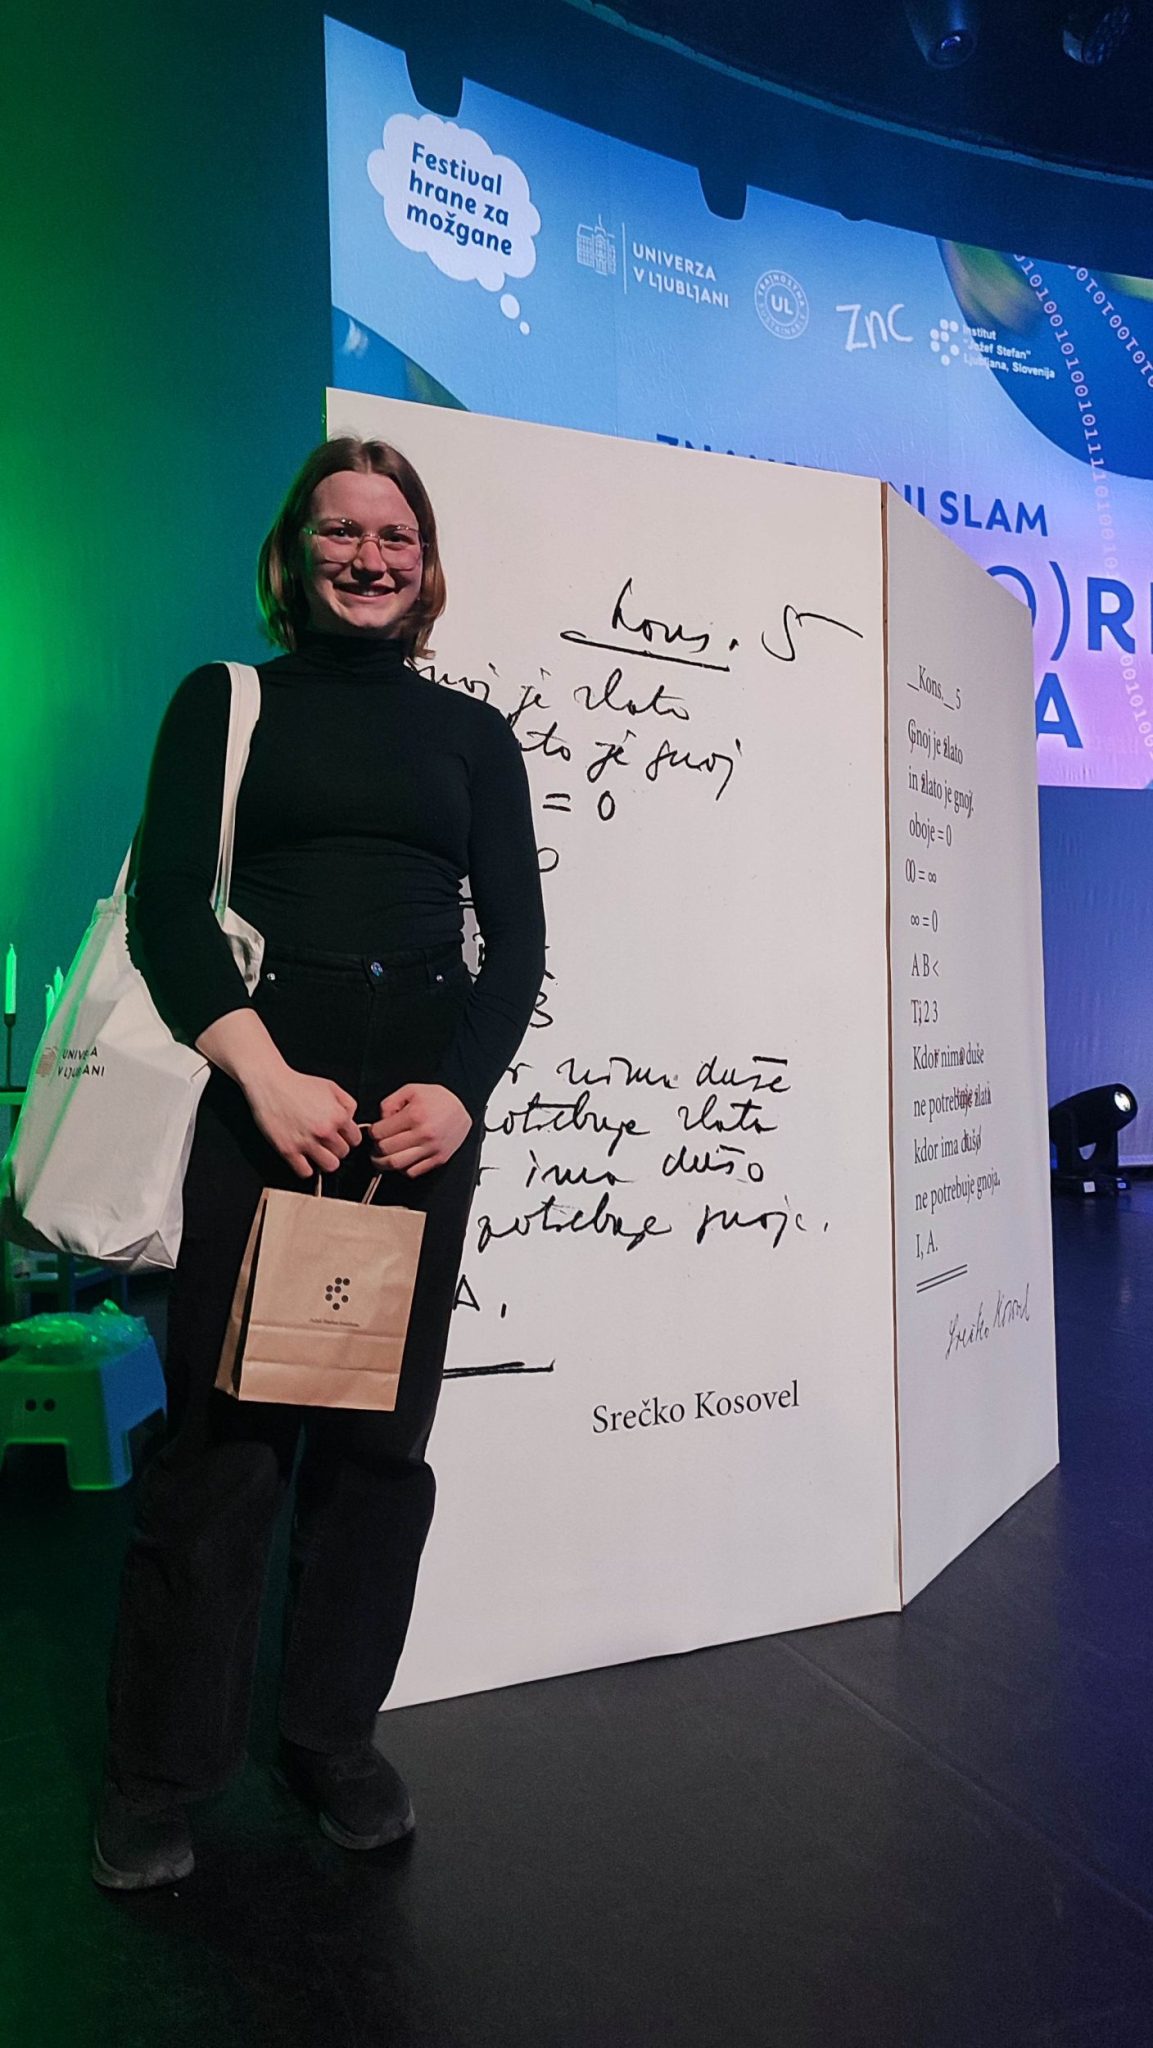 Festival
hrane za
možgane
UNIVERZA
V LJUBLJANI
TRAJNOSTNA
UL
SUSTAINABLE
ZnC
Institut
"Jožef Stefan"
Ljubljana, Slovenija
SLAM
Kons. 5
je zlato
je gnoj
= 0
nima duše
potrebuje zlata
ima dušo
potrebuje gnoja.
A.
Srečko Kosovel
_Kons,_ 5
Gnoj je zlato
in zlato je gnoj.
oboje = 0
0 = ∞
∞ = 0
A B <
1, 2 3
Kdor nima duše
ne potrebuje zlata
kdor ima dušo
ne potrebuje gnoja.
I, A.
Srečko Kosovel
UNIVERZA
V LJUBLJANI